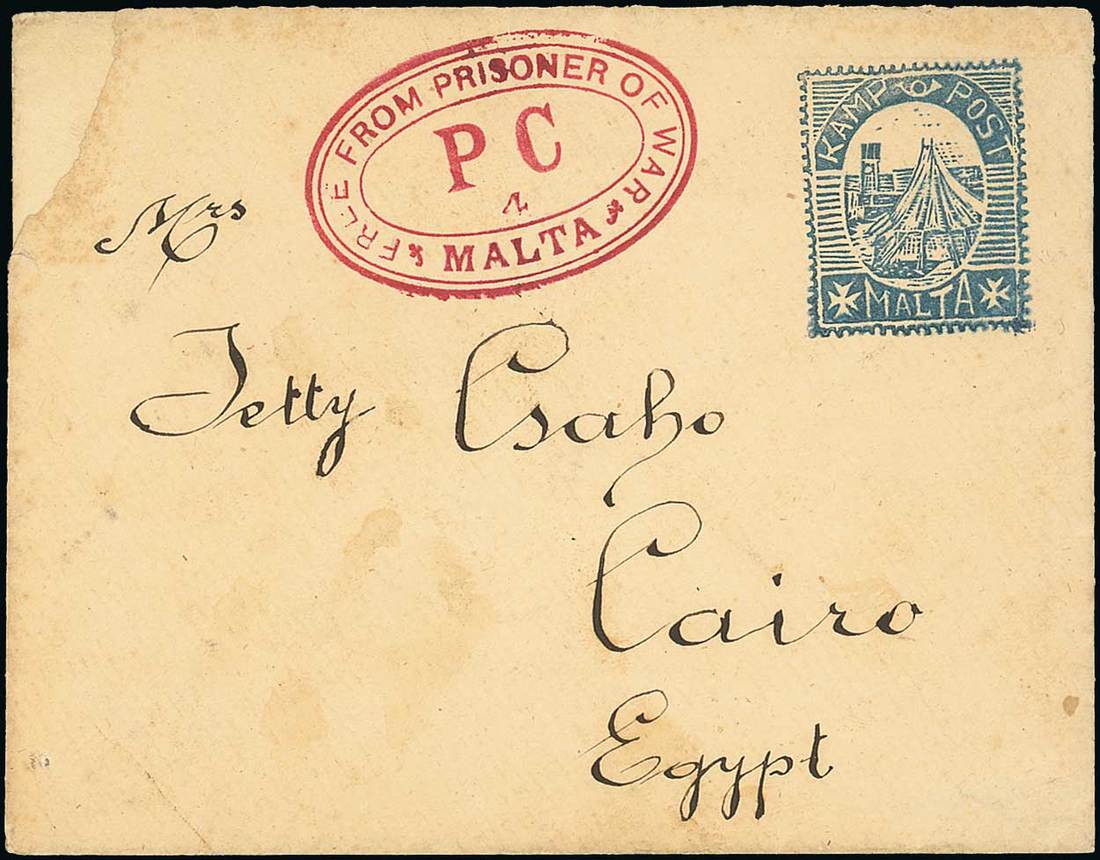 FREE FROM PRISONER OF WAR
P C
4
* MALTA *
KAMP POST
MALTA
Mrs
Jetty Csaho
Cairo
Egypt